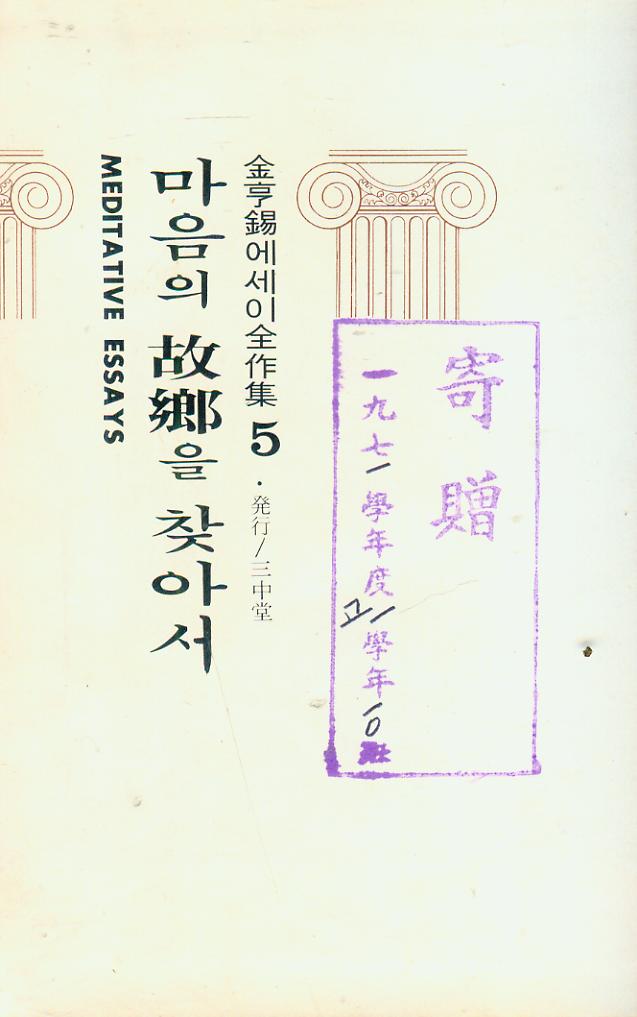 寄贈
一九七一學年度
고一學年10班
金亨錫에세이全作集 5 · 発行/三中堂
마음의 故鄕을 찾아서
MEDITATIVE ESSAYS